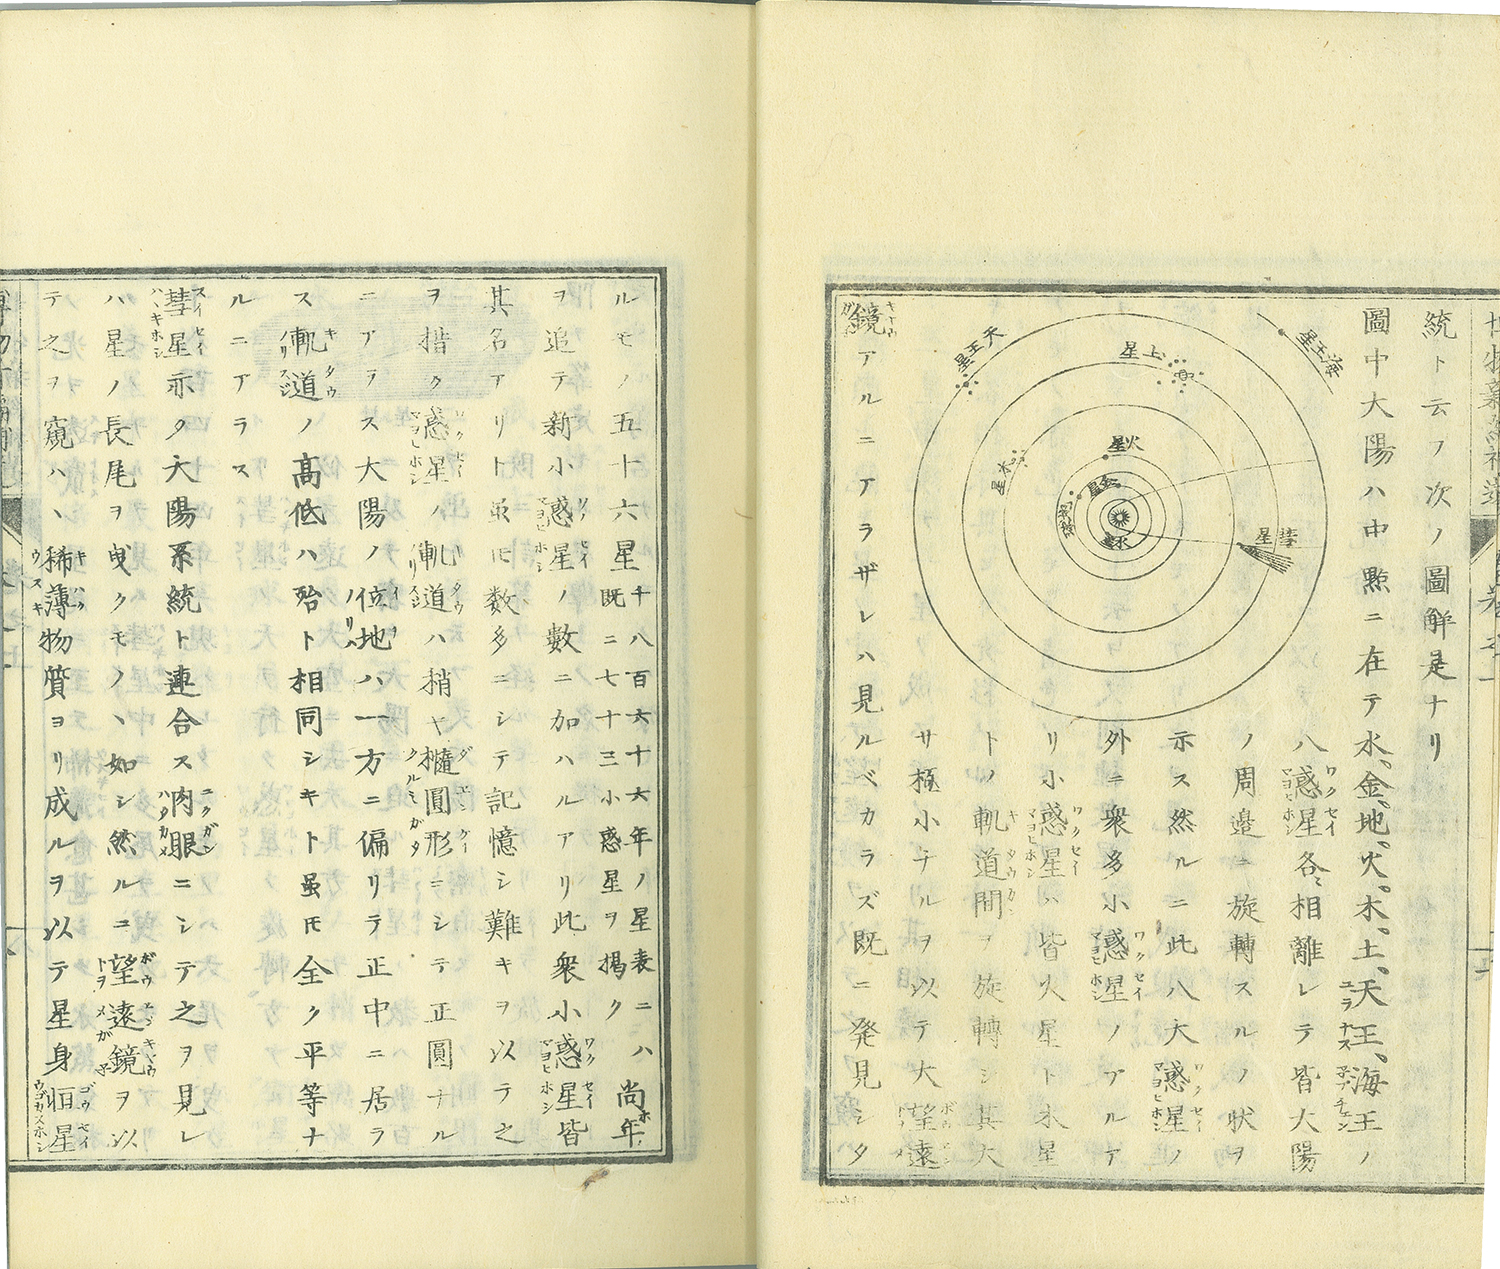 統ト云フ次ノ圖解是ナリ
圖中大陽ハ中㸃ニ在テ水、金、地、火、木、土、天王、海王ノ
八惑星各〻相離レテ皆大陽
ノ周邉ニ旋轉スルノ狀ヲ
示ス然ルニ此八大惑星ノ
外ニ衆多小惑星ノアルア
リ小惑星ハ皆火星ト木星
トノ軌道間ヲ旋轉シ其大
サ極小ナルヲ以テ大望遠
鏡アルニアラザレハ見ルベカラズ既ニ発見シタ
海王星
天王星
土星
木星
火星
地球
金星
水星
彗星
ルモノ五十六星千八百六十六年ノ星表ニハ既ニ七十三小惑星ヲ掲ク尚年
ヲ追テ新小惑星ノ數ニ加ハルアリ此衆小惑星皆
其名アリト虽𪜈数多ニシテ記憶シ難キヲ以テ之
ヲ措ク惑星ノ軌道ハ稍ヤ橢圓形ニシテ正圓ナル
ニアラス大陽ノ位地ハ一方ニ偏リテ正中ニ居ラ
ス軌道ノ高低ハ殆ト相同シキト虽𪜈全ク平等ナ
ルニアラス
彗星亦タ大陽系統ト連合ス肉眼ニシテ之ヲ見レ
ハ星ノ長尾ヲ曳クモノヽ如シ然ルニ望遠鏡ヲ以
テ之ヲ窺ハヽ稀薄物質ヨリ成ルヲ以テ星身恒星